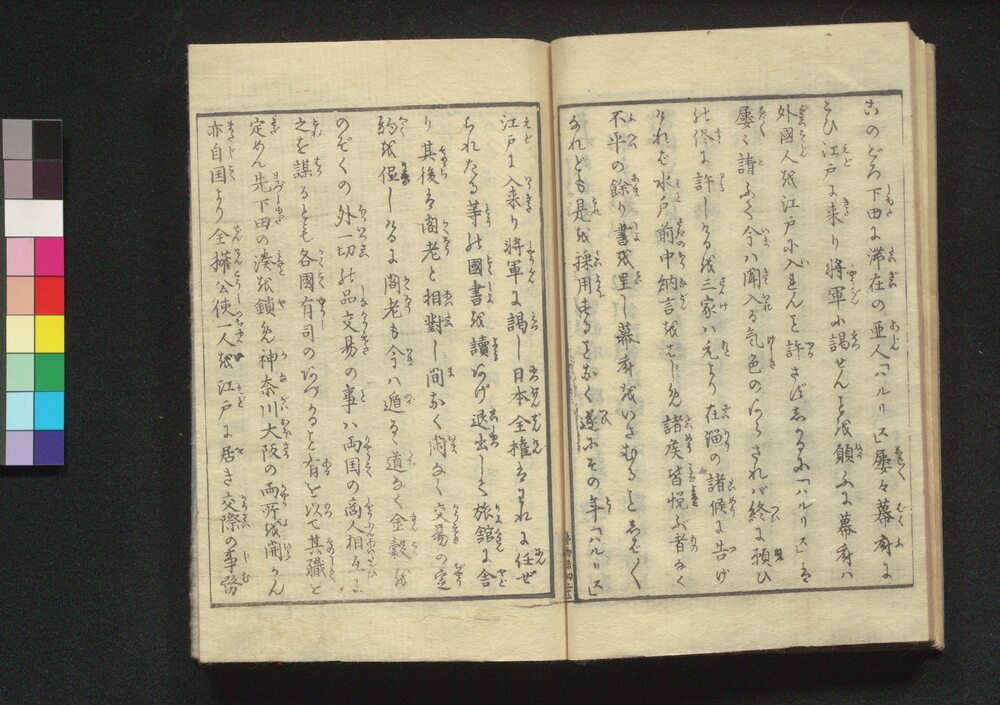 このごろ下田に滞在の亜人「ハルリス」屡々幕府に
とひ江戸に来り将軍に謁せんことを願ふに幕府ハ
外國人を江戸に入るゝを許さずしかるに「ハルリス」は
屡々請ふて今ハ聞入る気色のあらざれバ終に願ひ
の終に許しけるを三家ハ元より在溜の諸候に告げ
けれバ水戸前中納言をはじめ諸矦皆悦ぶ者なく
不平の餘り書を呈し幕府をいさむることしばしば
なれども是を採用することなく遂にその年「ハルリス」
江戸に入来り将軍に謁し日本全権はわれに任ぜ
られたる等の國書を讀あげ退出して旅館に舎
り其後は閣老と相對し間なく閑なく交易の定
約を促しけるに閣老も今ハ遁るゝ道なく金穀を
のぞくの外一切の品交易の事ハ両国の商人相互に
之を謀るとも各國有司のあづかること有を以て其職を
定めん先下田の湊を鎖め神奈川大阪の両所を開かん
亦自国より全権公使一人を江戸に居き交際の事務